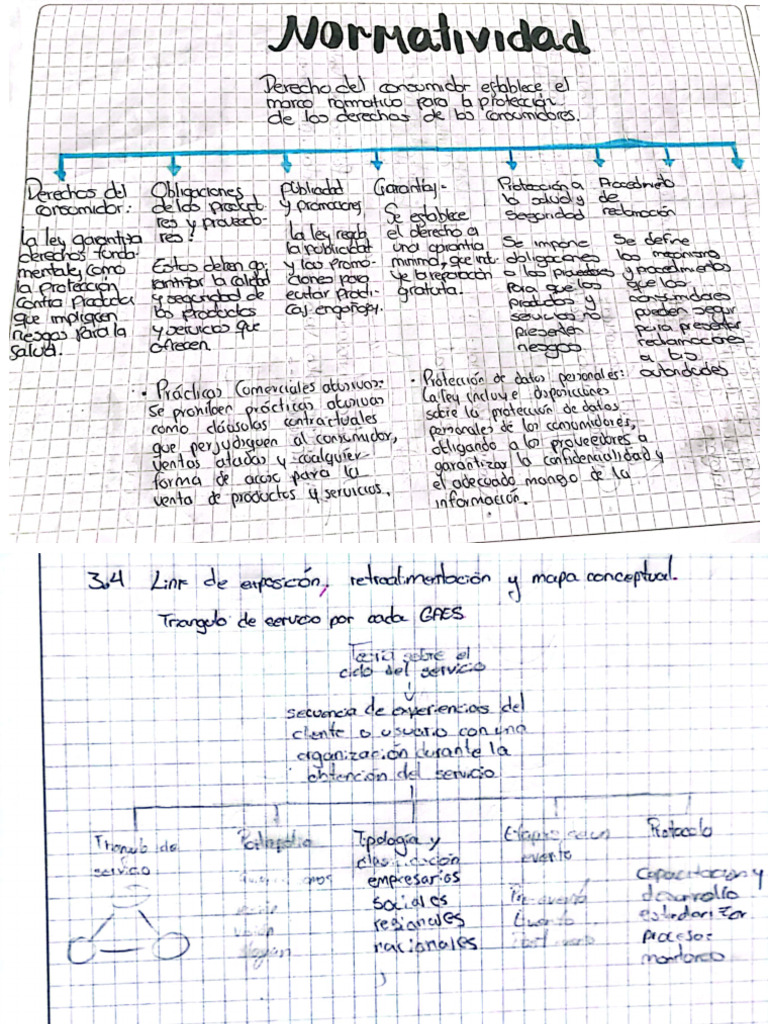 Normatividad
Derecho del consumidor establece el
marco normativo para la protección
de los derechos de los consumidores.
Derechos del
consumidor:
La ley garantiza
derechos funda-
mentales como
la protección
contra Productos
que impliquen
riesgos para la
salud.
Obligaciones
de los product
res y proveedo-
res:
Estos deben ga-
rantizar la calidad
y seguridad de
los productos
y servicios que
ofrecen.
publicidad
y promociones
La ley regula
la publicidad
y las promo-
ciones para
evitar practi-
cas engañosas.
Garantías-
Se establece
el derecho a
una garantía
mínima, que inclu-
ye la reparación
gratuita.
Protección a
la salud y
seguridad
Se impone
obligaciones
a los proveedores
para que los
productos y
servicios no
presenten
riesgos
Procedimiento
de
reclamación
Se define
los mecanismos
y procedimientos
que los
consumidores
pueden seguir
para presentar
reclamaciones
a las
autoridades
• Prácticas Comerciales abusivas:
Se prohiben prácticas abusivas
como cláusulas contractuales
que perjudiquen al consumidor,
ventas atadas y cualquier
forma de acoso para la
venta de productos y servicios.
• Protección de datos personales:
La ley incluye disposiciones
sobre la protección de datos
personales de los consumidores,
obligando a los proveedores a
garantizar la confidencialidad y
el adecuado manejo de la
información.
3.4 Link de exposición, retroalimentación y mapa conceptual.
Triangulo de servicio por cada GAES
Teoria sobre el
ciclo del servicio
secuencia de experiencias del
cliente o usuario con una
organización durante la
obtención del servicio
Triangulo de
servicio
Tipología y
clasificación
empresarios
sociales
regionales
nacionales
evento
Pre evento
Evento
Protocolo
Capacitación y
desarrollo
estadarizar
procesos
monitoreo